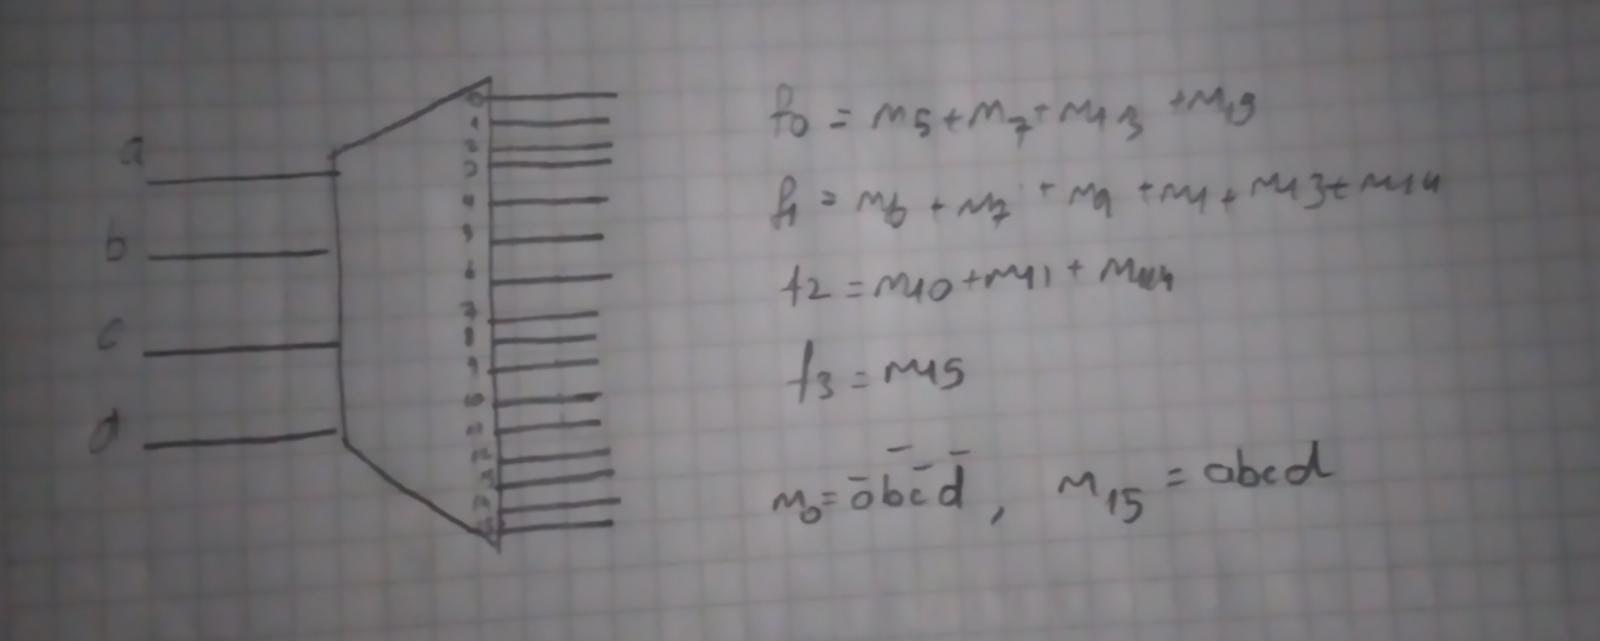 a
b
c
d
0
1
2
3
4
5
6
7
8
9
10
11
12
13
f0 = m5+m7+m13 +m15
f1 = m6 + m7 + m9 +m1 + m13+m14
f2 = m10+m11 + m14
f3 = m15
m0= a̅b̅c̅d̅ , m15 = abcd